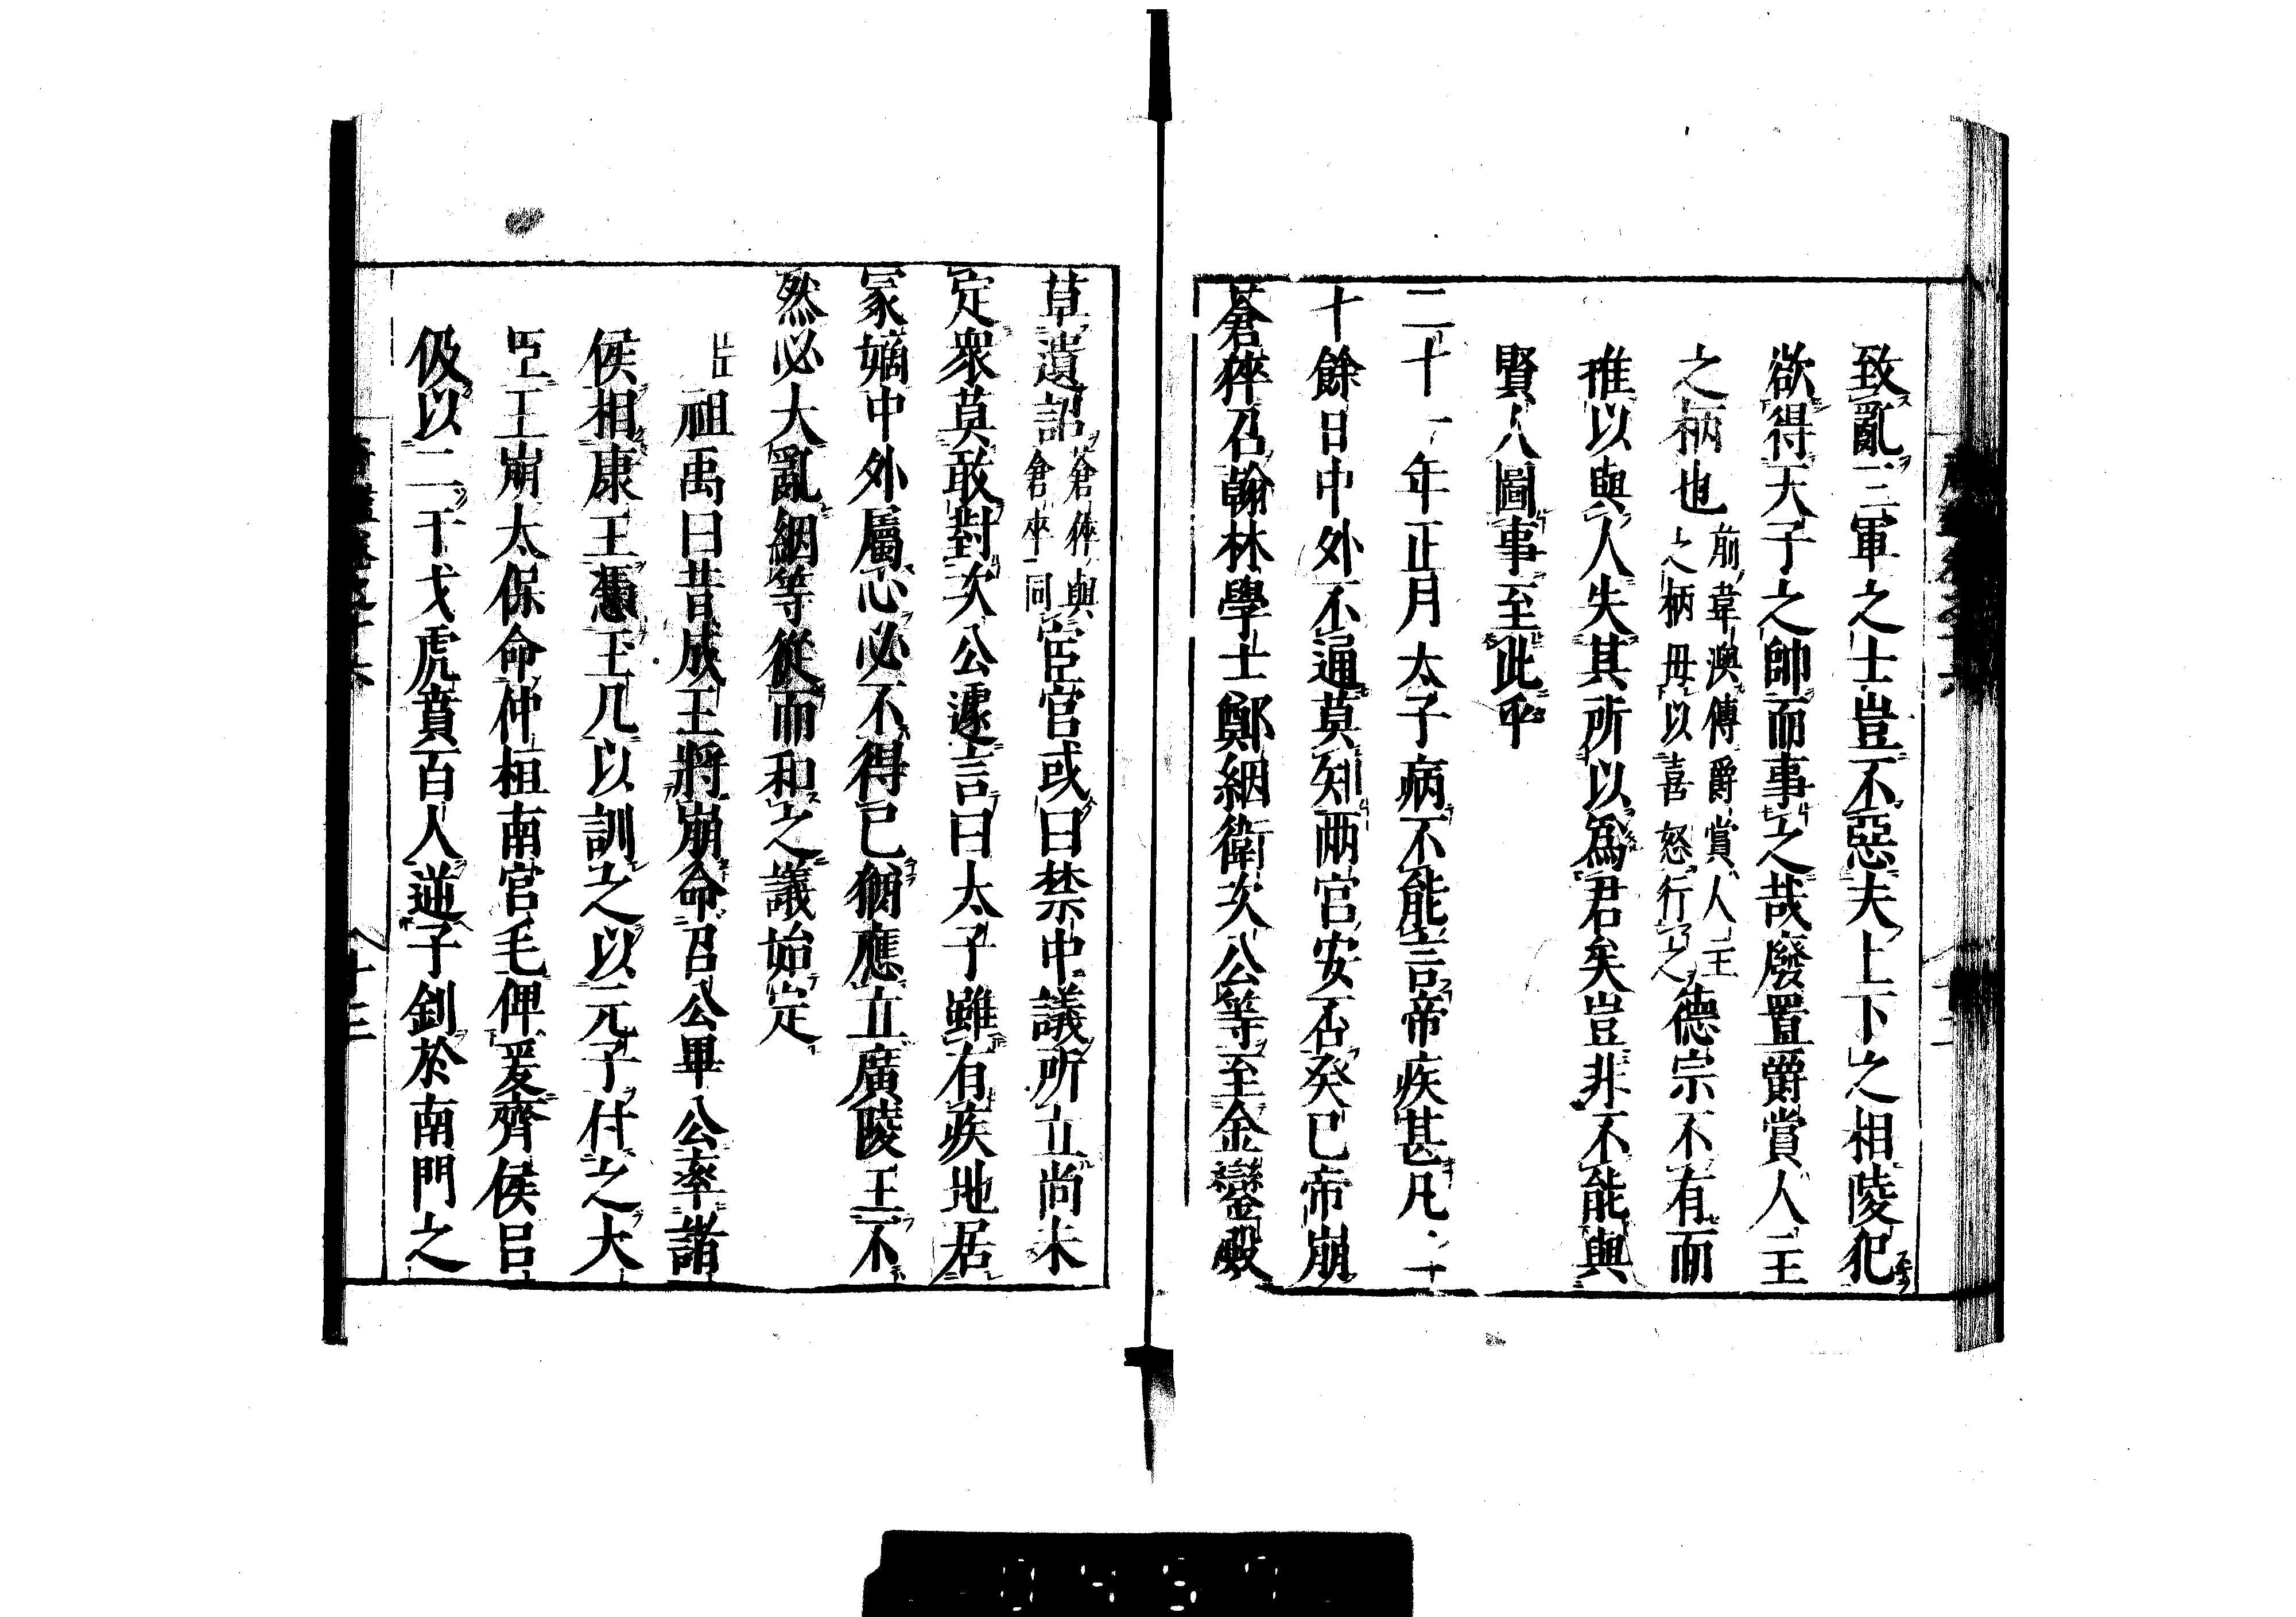 致亂三軍之士豈不惡夫上下之相陵犯
欲得天子之帥而事之哉廢置爵賞人主
之柄也前韋澳傳爵賞人主之柄毋以喜怒行之德宗不有而
推以與人失其所以爲君矣豈非不能與
賢人圖事至此乎
二十一年正月太子病不能言帝疾甚凡二
十餘日中外不通莫知兩宮安否癸巳帝崩
蒼猝召翰林學士鄭絪衛次公等至金鑾殿
草遺詔蒼猝與倉卒同宦官或曰禁中議所立尚未
定衆莫敢對次公遽言曰太子雖有疾地居
冢嫡中外屬心必不得已猶應立廣陵王不
然必大亂絪等從而和之議始定
臣祖禹曰昔成王將崩命召公畢公率諸
侯相康王憑玉几以訓之以元子付之大
臣王崩太保命仲桓南宮毛俾爰齊侯呂
伋以二干戈虎賁百人逆子釗於南門之